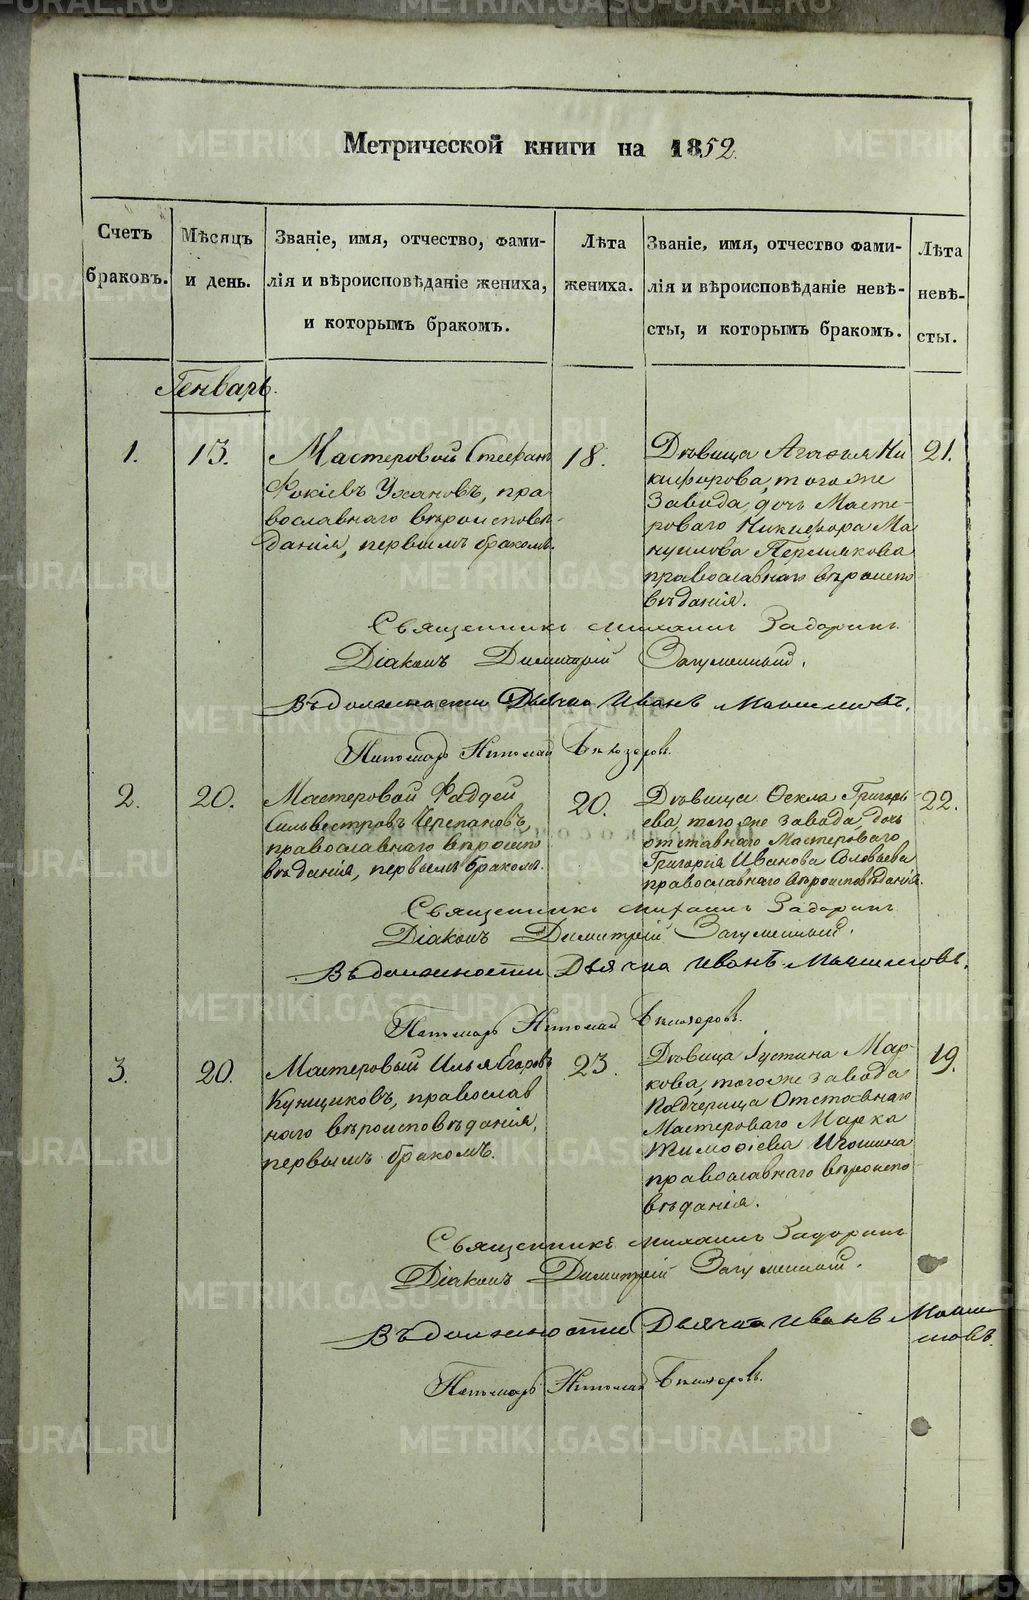 Метрической книги на 1852.
Счетъ браковъ.
Мѣсяцъ и день.
Званіе, имя, отчество, фами-
лія и вѣроисповѣданіе жениха,
и которымъ бракомъ.
Лѣта жениха.
Званіе, имя, отчество фами-
лія и вѣроисповѣданіе невѣ-
сты, и которымъ бракомъ.
Лѣта невѣ-
сты.
Генварь.
1.
13.
Мастеровой Стефанъ
Фокіевъ Ухановъ, пра
вославнаго вѣроисповѣ-
данія, первымъ бракомъ.
18.
Дѣвица Агафія Ни
кифорова, тогоже
завода, дочь Масте-
роваго Никифора Ма
нуилова Пермякова
православнаго вѣроиспо
вѣданія.
21.
Священникъ Михаилъ Задоринъ
Діаконъ Димитрій Загуменный.
Въ должности Дьячка Иванъ
Пономарь Николай Бѣлозеровъ.
2.
20.
Мастеровой Фаддей
Сильвестровъ Черепановъ,
православнаго вѣроиспо
вѣданія, первымъ бракомъ.
20.
Дѣвица Ѳекла Григорь
ева, тогоже завода, дочь
отставнаго Мастероваго
Григорія Иванова Соловьева
православнаго вѣроисповѣданія.
22.
Священникъ Михаилъ Задоринъ
Діаконъ Димитрій Загуменный.
Въ должности Дьячка Иванъ
Пономарь Николай Бѣлозеровъ.
3.
20.
Мастеровый Илья Егоровъ
Кунщиковъ, православ
наго вѣроисповѣданія,
первымъ бракомъ.
23.
Дѣвица Іустина Мар-
кова, тогоже завода
Падчерица Отставнаго
Мастероваго Марка
Тимоѳіева Игошина
православнаго вѣроиспо-
вѣданія.
19.
Священникъ Михаилъ Задоринъ
Діаконъ Димитрій Загуменный.
Въ должности Дьячка Иванъ
Пономарь Николай Бѣлозеровъ.
METRIKI.GASO-URAL.RU